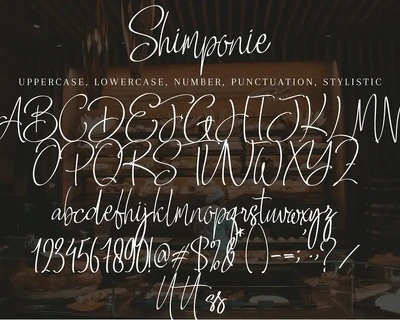 Shimponie
UPPERCASE, LOWERCASE, NUMBER, PUNCTUATION, STYLISTIC
ABCDEFGHIJKLMN
OPQRSTUVWXYZ
abcdefhijklmnopqrstuvwxyz
1234567890!@#$%&*()-=;.,?/